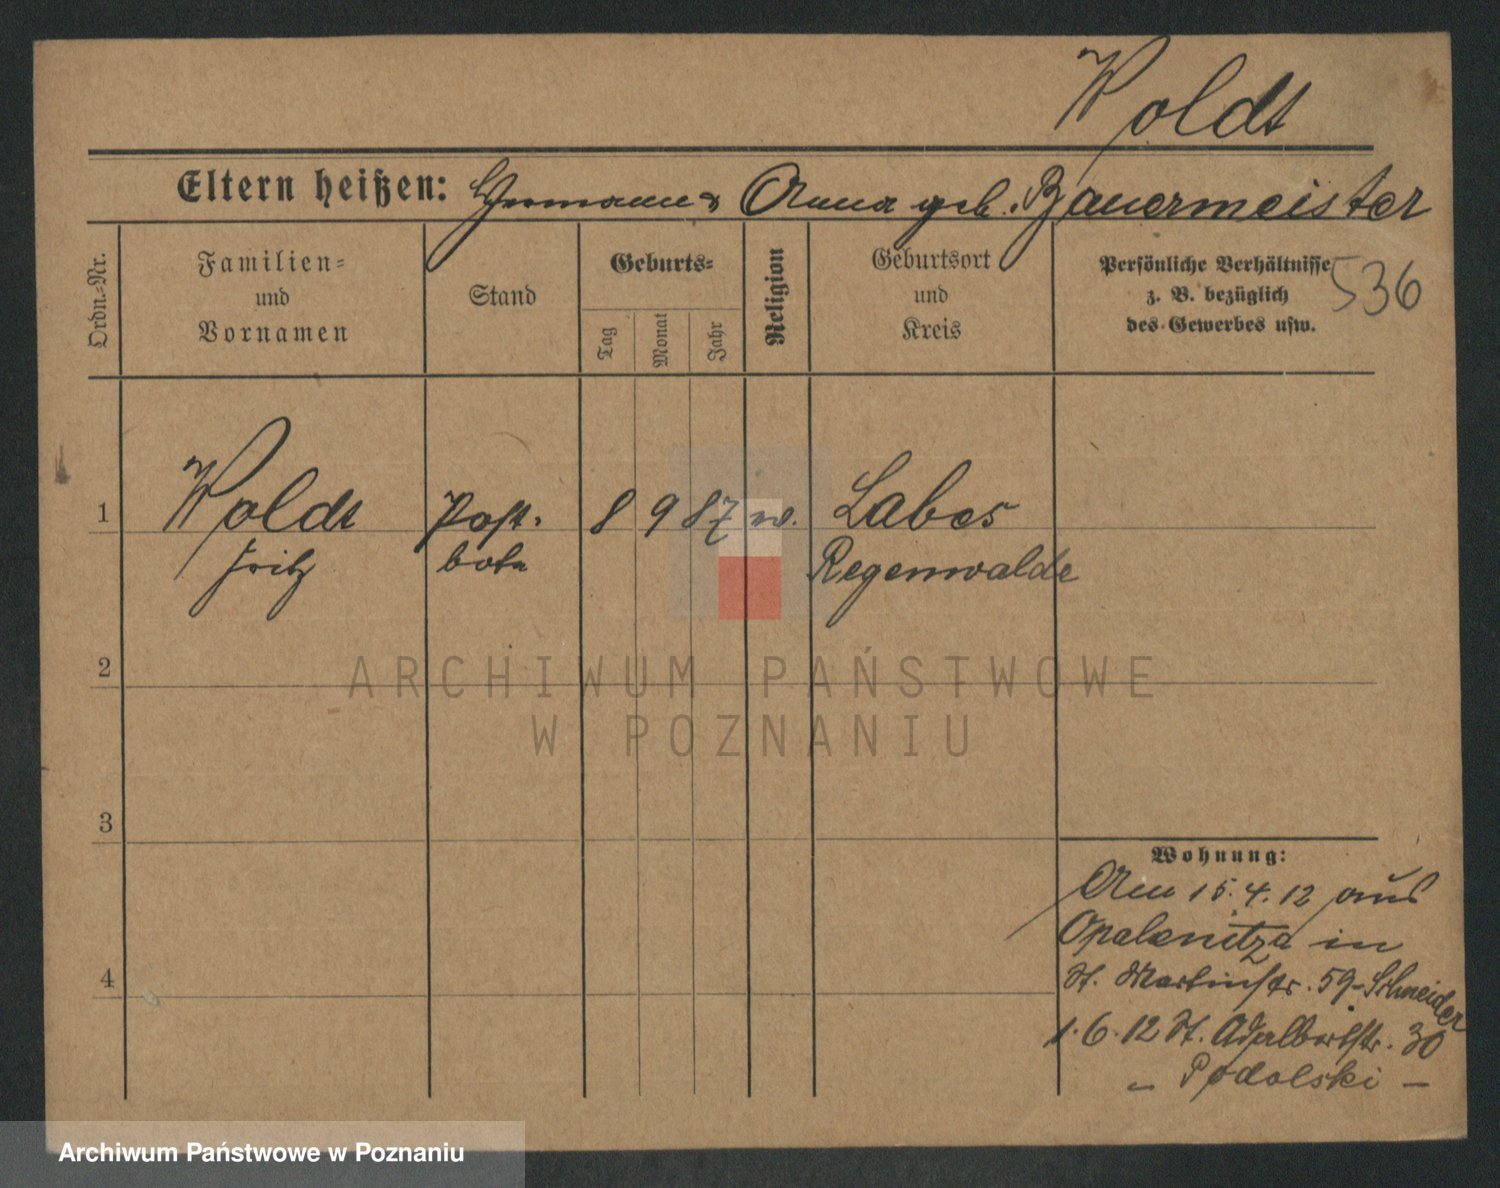 Woldt
Eltern heißen: Hermann & Anna geb. Bauermeister
Ordn.-Nr.
Familien=
und
Vornamen
Stand
Geburts=
Tag
Monat
Jahr
Religion
Geburtsort
und
Kreis
Persönliche Verhältnisse
z. B. bezüglich
des Gewerbes usw.
536
1 Woldt Post- 8 9 87 w. Labes
Fritz bote Regenwalde
2
3
4
Wohnung:
Am 15.4.12 aus
Opalenitza in
St. Martinstr. 59 - Schneider
1.6.12 St. Adalbertstr. 30
- Podolski -
ARCHIWUM PAŃSTWOWE
W POZNANIU
Archiwum Państwowe w Poznaniu